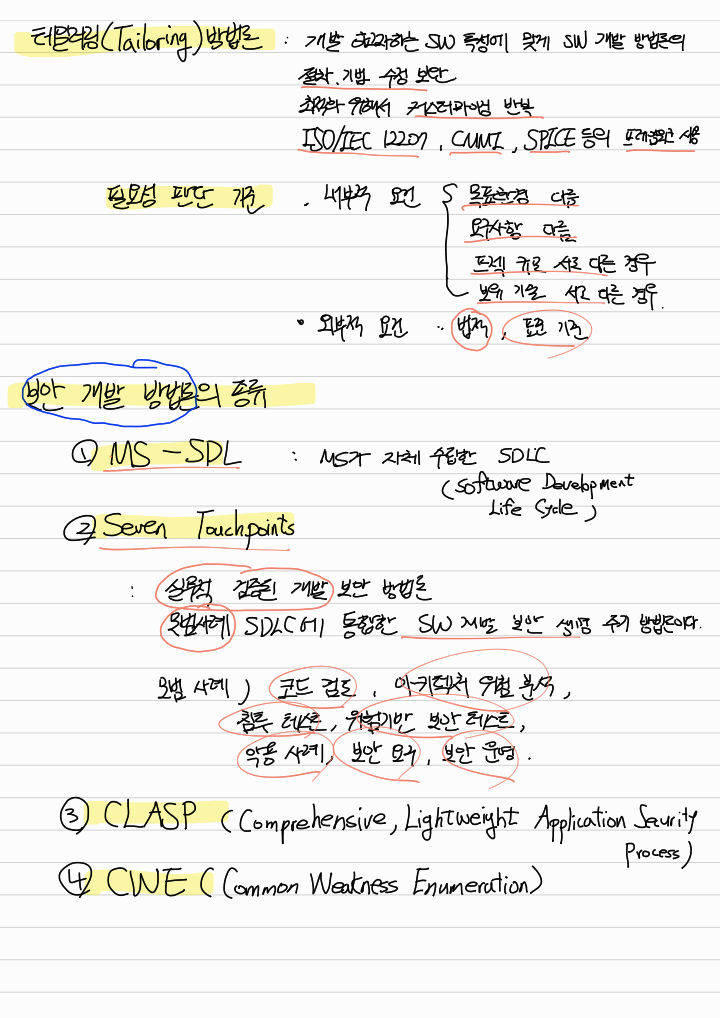 테일러링(Tailoring) 방법론 : 개발 하고자하는 SW 특성에 맞게 SW 개발 방법론의
절차, 기법 수정 보안
최적화 위해서 커스터마이징 반복
ISO/IEC 12207, CMMI, SPICE 등의 프레임워크 사용
필요성 판단 기준 . 내부적 요건 { 목표환경 다름
요구사항 다름
프젝 규모 서로 다른 경우
보유 기술 서로 다른 경우.
• 외부적 요건 : 법적, 표준 기준
보안 개발 방법론의 종류
① MS - SDL : MS가 자체 수립한 SDLC
(Software Development
Life Cycle)
② Seven Touchpoints
: 실무적 검증된 개발 보안 방법론
모범사례 SDLC에 통합한 SW 개발 보안 생명 주기 방법론이다.
모범 사례) 코드 검토, 아키텍처 위험 분석,
침투 테스트, 위험기반 보안 테스트,
악용 사례, 보안 요구, 보안 운영.
③ CLASP (Comprehensive, Lightweight Application Security
Process)
④ CWE (Common Weakness Enumeration)